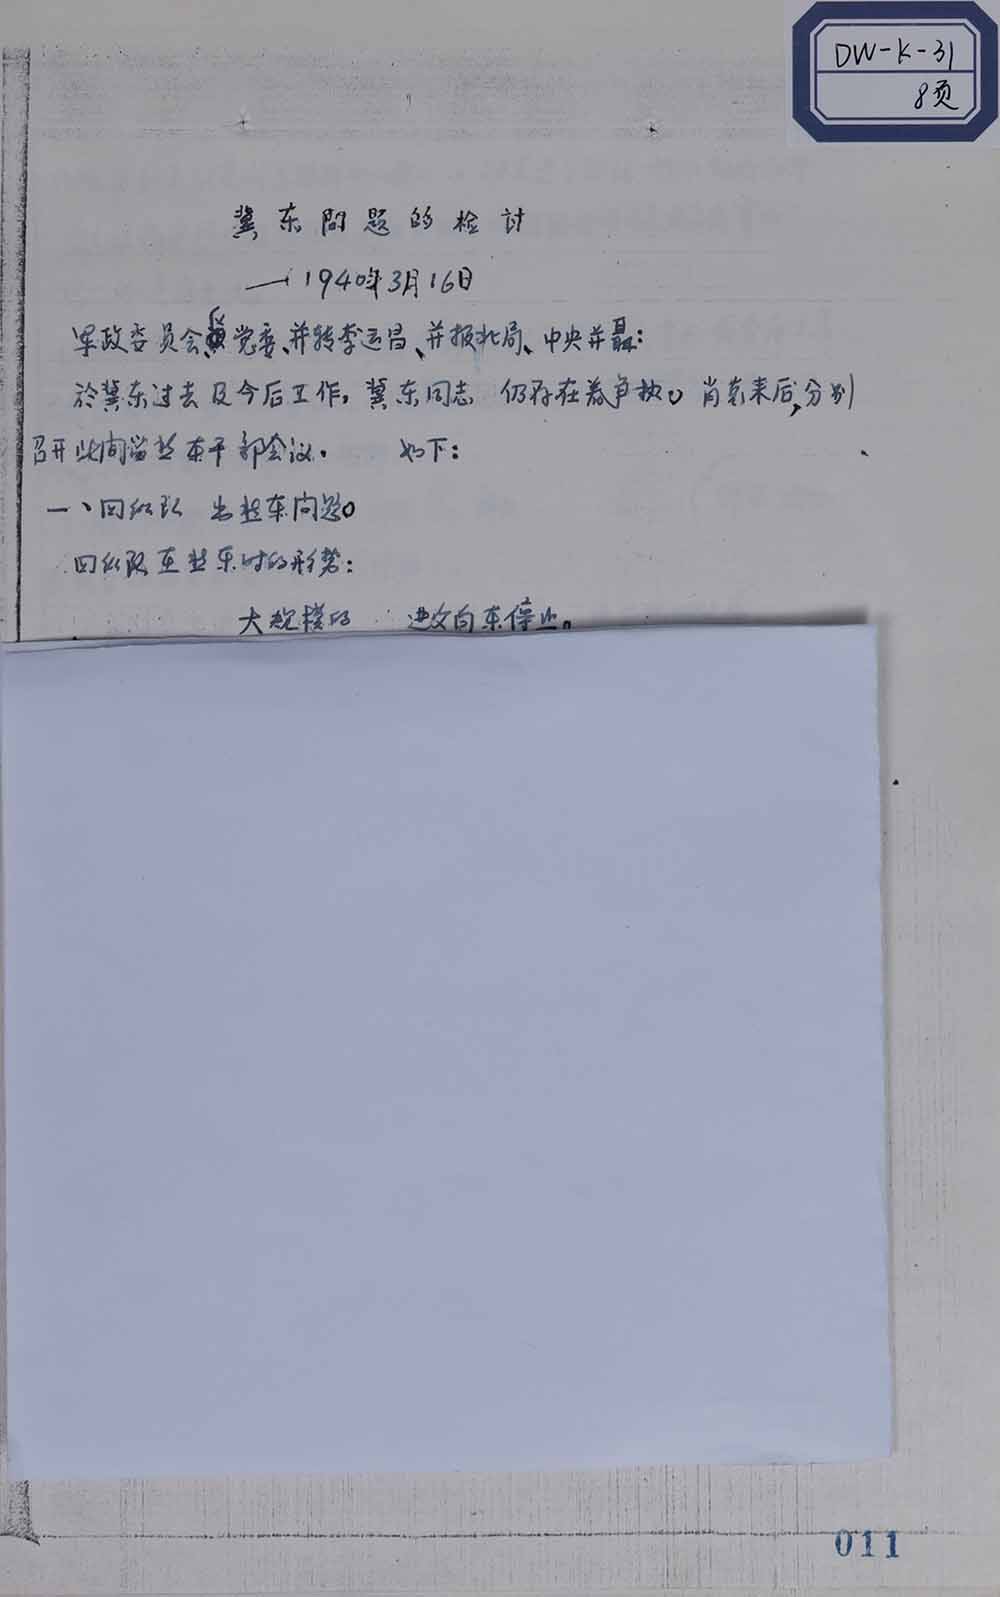 DW-K-31
8页
冀东問题的检討
—1940年3月16日
军政委员会党委、并转李运昌、并报北局、中央并聂:
於冀东过去及今后工作,冀东同志 仍存在着争执。肖克来后,分别
召开此间当冀东干部会议. 如下:
一、四纵队 出冀东问题。
四纵队在冀东时的形势:
大规模的 进攻向未停止。
011